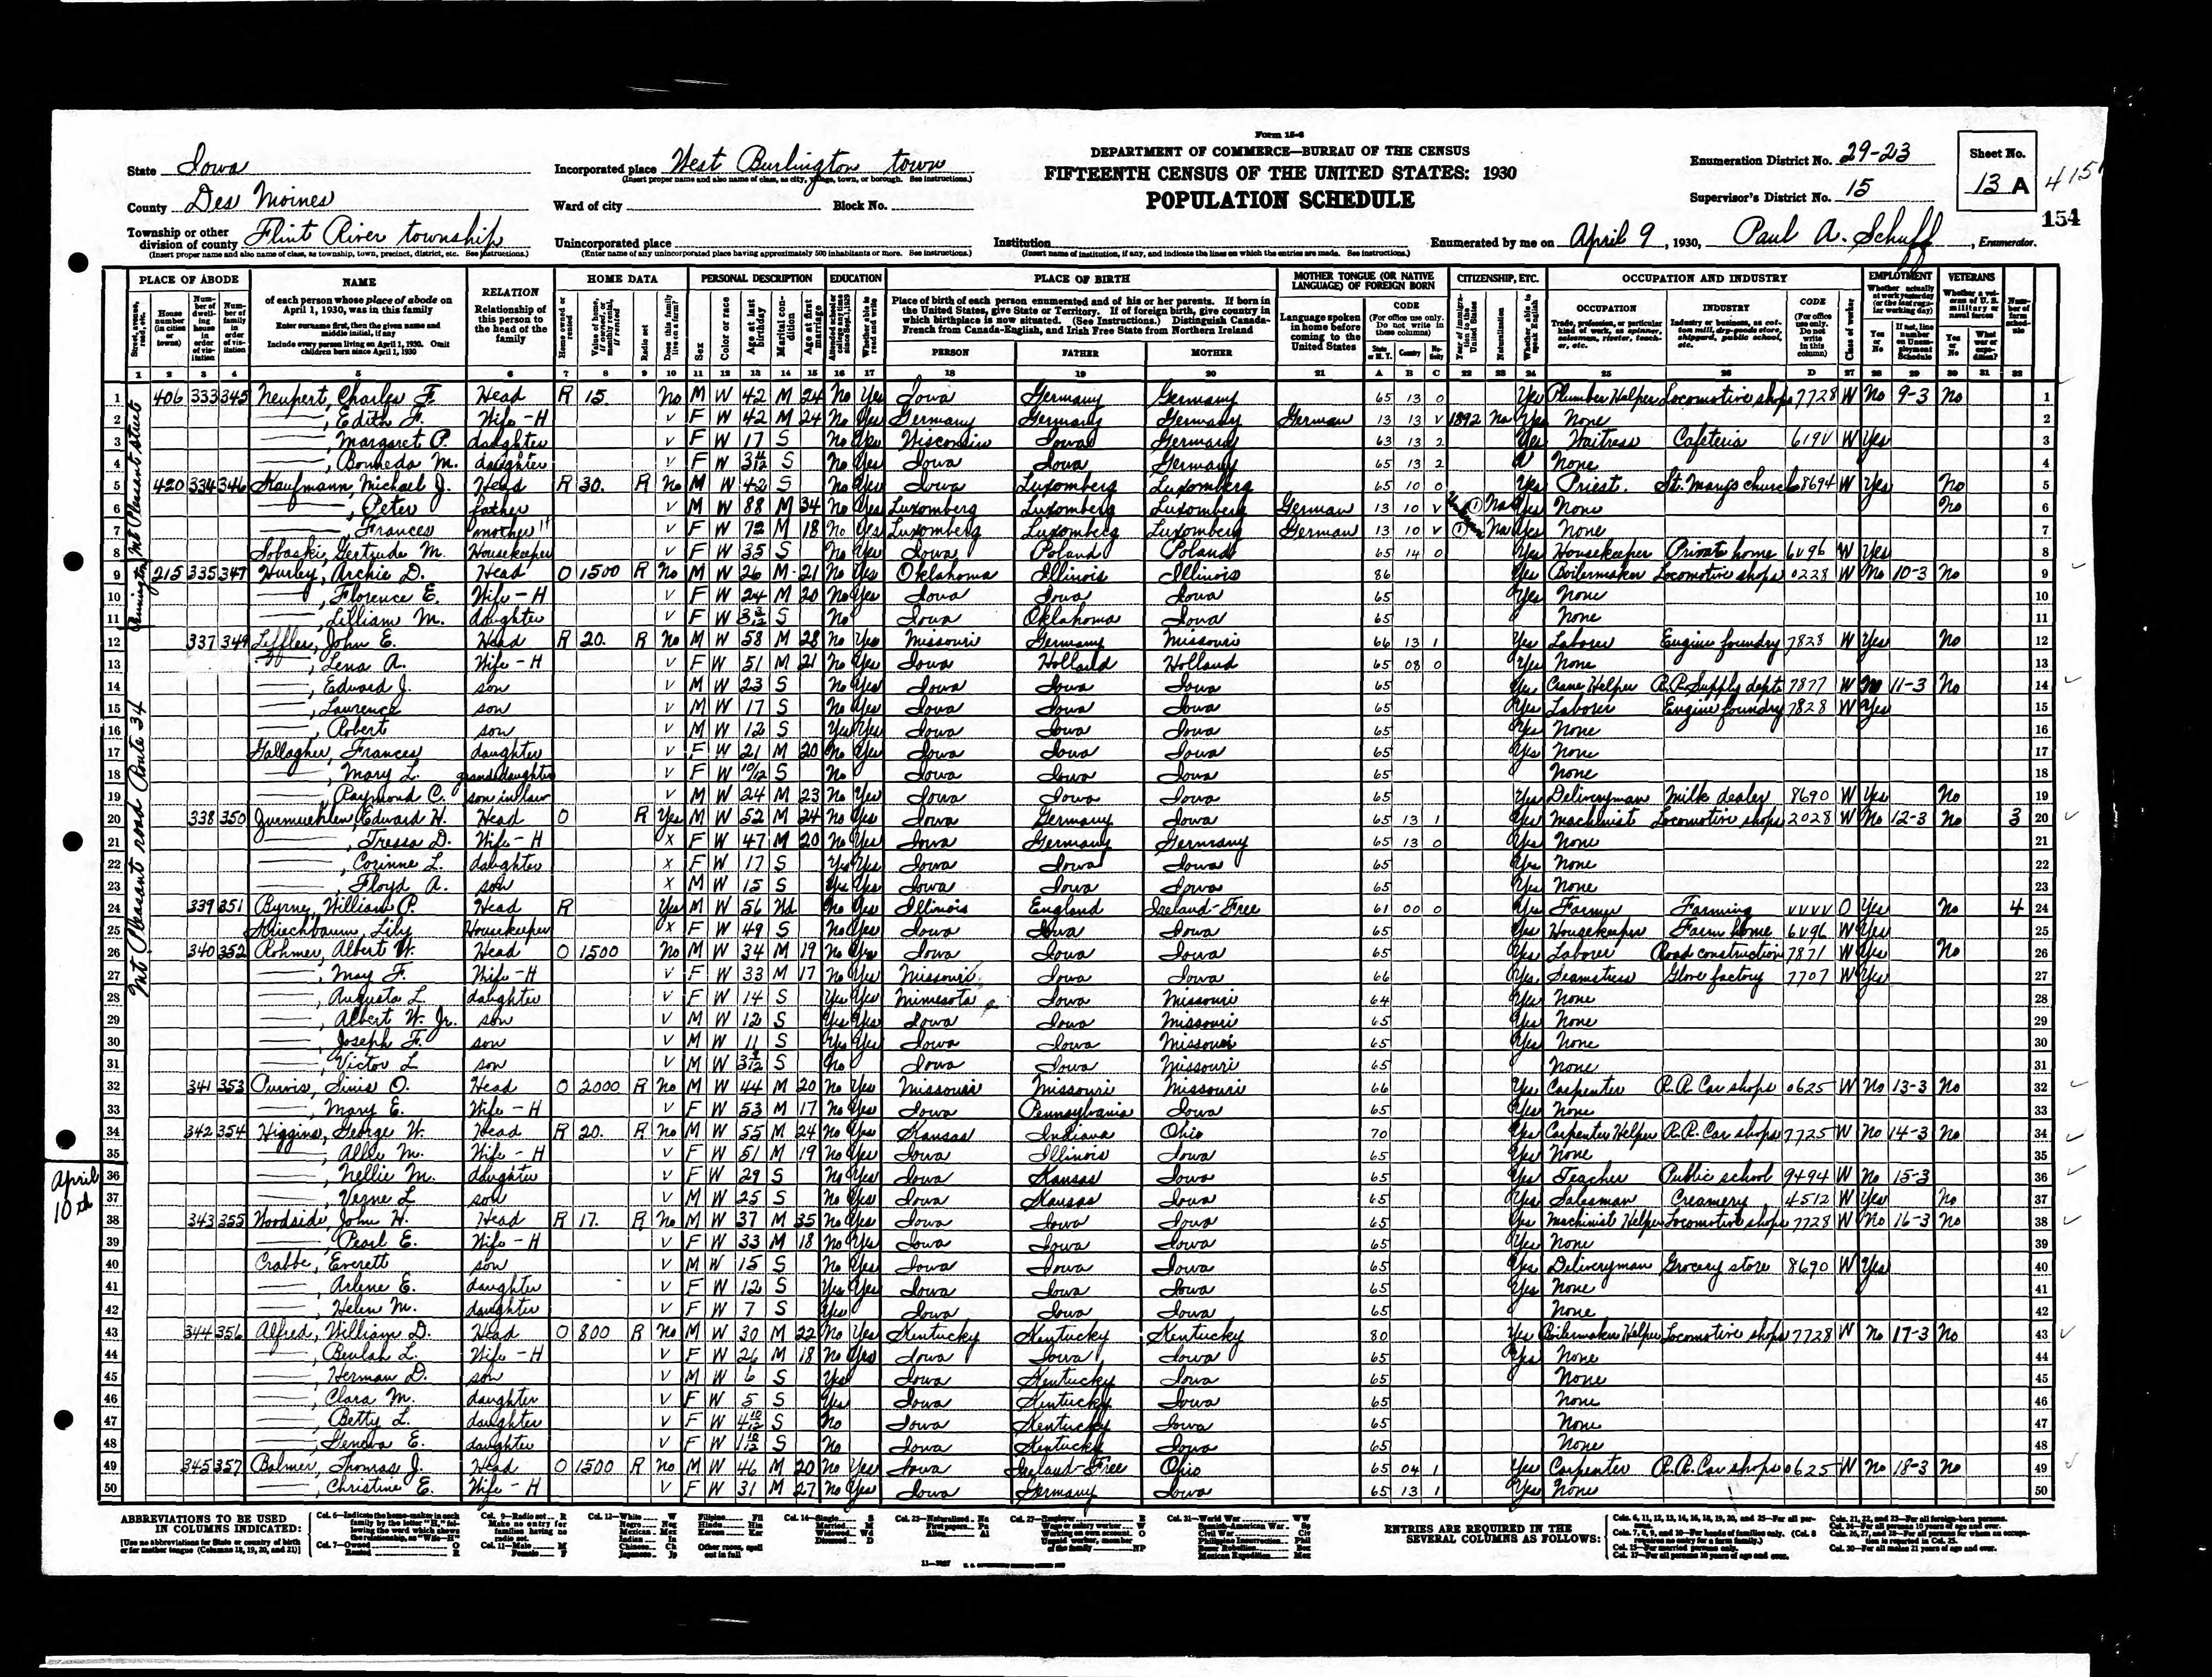 Form 15-6
DEPARTMENT OF COMMERCE—BUREAU OF THE CENSUS
FIFTEENTH CENSUS OF THE UNITED STATES: 1930
POPULATION SCHEDULE
State Iowa
County Des Moines
Township or other division of county Flint River township
(Insert proper name and also name of class, as township, town, precinct, district, etc. See instructions.)
Incorporated place West Burlington town
(Insert proper name and also name of class, as city, village, town, or borough. See instructions.)
Ward of city Block No.
Unincorporated place
(Enter name of any unincorporated place having approximately 500 inhabitants or more. See instructions.)
Institution
(Insert name of institution, if any, and indicate the lines on which the entries are made. See instructions.)
Enumeration District No. 29-23
Supervisor's District No. 15
Sheet No. 13 A
154
Enumerated by me on April 9, 1930, Paul A. Schuff, Enumerator.
PLACE OF ABODE NAME RELATION HOME DATA PERSONAL DESCRIPTION EDUCATION PLACE OF BIRTH MOTHER TONGUE (OR NATIVE LANGUAGE) OF FOREIGN BORN CITIZENSHIP, ETC. OCCUPATION AND INDUSTRY EMPLOYMENT VETERANS
1 406 333 345 Neupert, Charles F. Head R 15. No M W 42 M 24 No Yes Iowa Germany Germany 65 13 0 Yes Plumber Helper Locomotive shops 7728 W No 9-3 No
2 , Edith F. Wife - H V F W 42 M 24 No Yes Germany Germany Germany German 13 13 V 1892 Na Yes None
3 , Margaret P. daughter V F W 17 S No Yes Wisconsin Iowa Germany 63 13 2 Yes Waitress Cafeteria 619V W Yes
4 , Bonneda M. daughter V F W S No Yes Iowa Iowa Germany 65 13 2 V None
5 420 334 346 Kaufmann, Michael J. Head R 30. R No M W 42 S No Yes Iowa Luxomberg Luxomberg 65 10 0 Yes Priest. St. Marys church 8694 W Yes No
6 , Peter father V M W 88 M 34 No Yes Luxomberg Luxomberg Luxomberg German 13 10 V Na Yes None No
7 , Frances mother H V F W 72 M 18 No Yes Luxomberg Luxomberg Luxomberg German 13 10 V Na Yes None
8 Sobaski, Gertrude M. Housekeeper V F W 35 S No Yes Iowa Poland Poland 65 14 0 Yes Housekeeper Private home 6V96 W Yes
9 215 335 347 Hurley, Archie D. Head O 1500 R No M W 26 M 21 No Yes Oklahoma Illinois Illinois 86 Yes Boilermaker Locomotive shops 0228 W No 10-3 No
10 , Florence E. Wife - H V F W 24 M 20 No Yes Iowa Iowa Iowa 65 Yes None
11 , Lilliam M. daughter V F W 3 3/12 S No Iowa Oklahoma Iowa 65 None
12 337 349 Leffler, John E. Head R 20. R No M W 58 M 28 No Yes Missouri Germany Missouri 66 13 1 Yes Laborer Engine foundry 7828 W Yes No
13 , Lena A. Wife - H V F W 51 M 21 No Yes Iowa Holland Holland 65 08 0 Yes None
14 , Edward J. son V M W 23 S No Yes Iowa Iowa Iowa 65 Yes Crane Helper R.R. Supply dept. 7877 W No 11-3 No
15 , Laurence son V M W 17 S No Yes Iowa Iowa Iowa 65 Yes Laborer Engine foundry 7828 W Yes
16 , Robert son V M W 12 S Yes Yes Iowa Iowa Iowa 65 Yes None
17 Gallagher, Frances daughter V F W 21 M 20 No Yes Iowa Iowa Iowa 65 Yes None
18 , Mary L. granddaughter V F W 10/12 S No Iowa Iowa Iowa 65 None
19 , Raymond C. son in law V M W 24 M 23 No Yes Iowa Iowa Iowa 65 Yes Deliveryman Milk dealer 8690 W Yes No
20 338 350 Zurmuehlen, Edward H. Head O R Yes M W 52 M 24 No Yes Iowa Germany Iowa 65 13 1 Yes Machinist Locomotive shops 2028 W No 12-3 No 3
21 , Tressa D. Wife - H X F W 47 M 20 No Yes Iowa Germany Germany 65 13 0 Yes None
22 , Corinne L. daughter X F W 17 S Yes Yes Iowa Iowa Iowa 65 Yes None
23 , Floyd A. son X M W 15 S Yes Yes Iowa Iowa Iowa 65 Yes None
24 339 351 Byrne, William P. Head R Yes M W 56 Wd No Yes Illinois England Ireland-Free 61 00 0 Yes Farmer Farming VVVV O Yes No 4
25 Striechbaum, Lily Housekeeper X F W 49 S No Yes Iowa Iowa Iowa 65 Yes Housekeeper Farm home 6V96 W Yes
26 340 352 Rohmer, Albert W. Head O 1500 No M W 34 M 19 No Yes Iowa Iowa Iowa 65 Yes Laborer Road construction 7871 W Yes No
27 , May F. Wife - H V F W 33 M 17 No Yes Missouri Iowa Iowa 66 Yes Seamstress Glove factory 7707 W Yes
28 , Augusta L. daughter V F W 14 S Yes Yes Minnesota Iowa Missouri 64 Yes None
29 , Albert W. Jr. son V M W 12 S Yes Yes Iowa Iowa Missouri 65 Yes None
30 , Joseph F. son V M W 11 S Yes Yes Iowa Iowa Missouri 65 Yes None
31 , Victor L. son V M W S No Iowa Iowa Missouri 65 None
32 341 353 Purvis, O. Head O 2000 R No M W 44 M 20 No Yes Missouri Missouri Missouri 66 Yes Carpenter R.R. Car shops 0625 W No 13-3 No
33 , Mary E. Wife - H V F W 53 M 17 No Yes Iowa Pennsylvania Iowa 65 Yes None
34 342 354 Higgins, George W. Head R 20. R No M W 55 M 24 No Yes Kansas Indiana Ohio 70 Yes Carpenter Helper R.R. Car shops 7725 W No 14-3 No
35 , Allie M. Wife - H V F W 51 M 19 No Yes Iowa Illinois Iowa 65 Yes None
April 10th
36 , Nellie M. daughter V F W 29 S No Yes Iowa Kansas Iowa 65 Yes Teacher Public school 9494 W No 15-3
37 , Verne L. son V M W 25 S No Yes Iowa Kansas Iowa 65 Yes Salesman Creamery 4512 W Yes No
38 343 355 Woodside, John H. Head R 17. R No M W 37 M 35 No Yes Iowa Iowa Iowa 65 Yes Machinist Helper Locomotive shops 7728 W No 16-3 No
39 , Pearl E. Wife - H V F W 33 M 18 No Yes Iowa Iowa Iowa 65 Yes None
40 Crabbe, Everett son V M W 15 S No Yes Iowa Iowa Iowa 65 Yes Deliveryman Grocery store 8690 W Yes
41 , Arlene E. daughter V F W 12 S Yes Yes Iowa Iowa Iowa 65 Yes None
42 , Helen M. daughter V F W 7 S Yes Iowa Iowa Iowa 65 None
43 344 356 Alfred, William D. Head O 800 R No M W 30 M 22 No Yes Kentucky Kentucky Kentucky 80 Yes Boilermaker Helper Locomotive shops 7728 W No 17-3 No
44 , Beulah L. Wife - H V F W 26 M 18 No Yes Iowa Iowa Iowa 65 Yes None
45 , Herman D. son V M W 6 S Yes Iowa Kentucky Iowa 65 None
46 , Clara M. daughter V F W 5 S Yes Iowa Kentucky Iowa 65 None
47 , Betty L. daughter V F W 4 10/12 S No Iowa Kentucky Iowa 65 None
48 , Geneva E. daughter V F W 1 10/12 S No Iowa Kentucky Iowa 65 None
49 345 357 Balmer, Thomas J. Head O 1500 R No M W 46 M 20 No Yes Iowa Ireland-Free Ohio 65 04 1 Yes Carpenter R.R. Car shops 0625 W No 18-3 No
50 , Christine E. Wife - H V F W 31 M 27 No Yes Iowa Germany Iowa 65 13 1 Yes None
Mt Pleasant street
Mt Pleasant road Route 34
ABBREVIATIONS TO BE USED IN COLUMNS INDICATED:
[Use no abbreviations for State or country of birth or for mother tongue (Columns 18, 19, 20, and 21)]
ENTRIES ARE REQUIRED IN THE SEVERAL COLUMNS AS FOLLOWS: